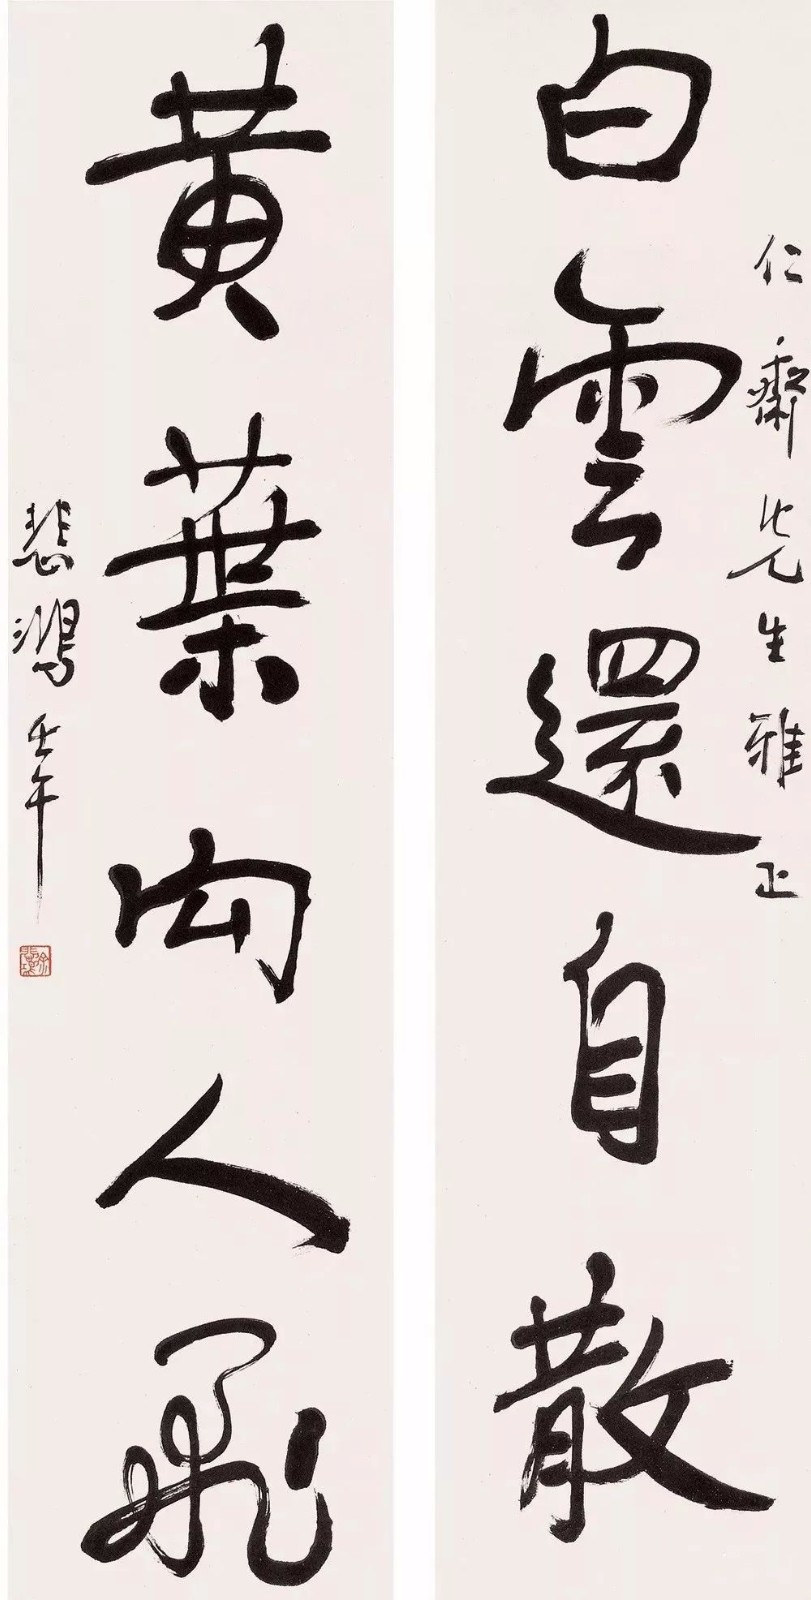 仁齋先生雅正
白雲還自散
黄葉向人飛
悲鴻壬午